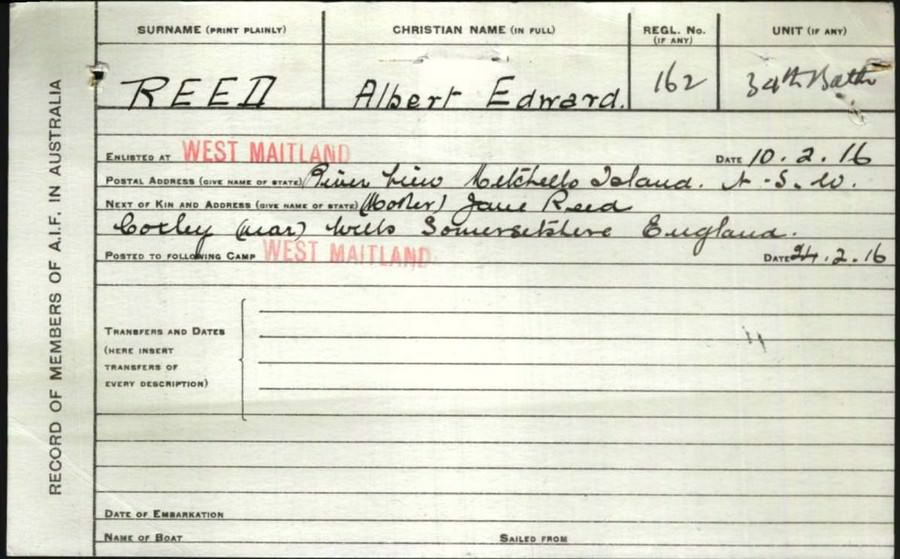 RECORD OF MEMBERS OF A.I.F. IN AUSTRALIA
SURNAME (PRINT PLAINLY) CHRISTIAN NAME (IN FULL) REGL. No. (IF ANY) UNIT (IF ANY)
REED Albert Edward. 162 34th Battn
ENLISTED AT WEST MAITLAND DATE 10.2.16
POSTAL ADDRESS (GIVE NAME OF STATE) River View Mitchells Island. N.S.W.
NEXT OF KIN AND ADDRESS (GIVE NAME OF STATE) (Mother) Jane Reed
Coxley (near) Wells Somersetshire England.
POSTED TO FOLLOWING CAMP WEST MAITLAND DATE 24.2.16
TRANSFERS AND DATES
(HERE INSERT
TRANSFERS OF
EVERY DESCRIPTION)
DATE OF EMBARKATION
NAME OF BOAT SAILED FROM